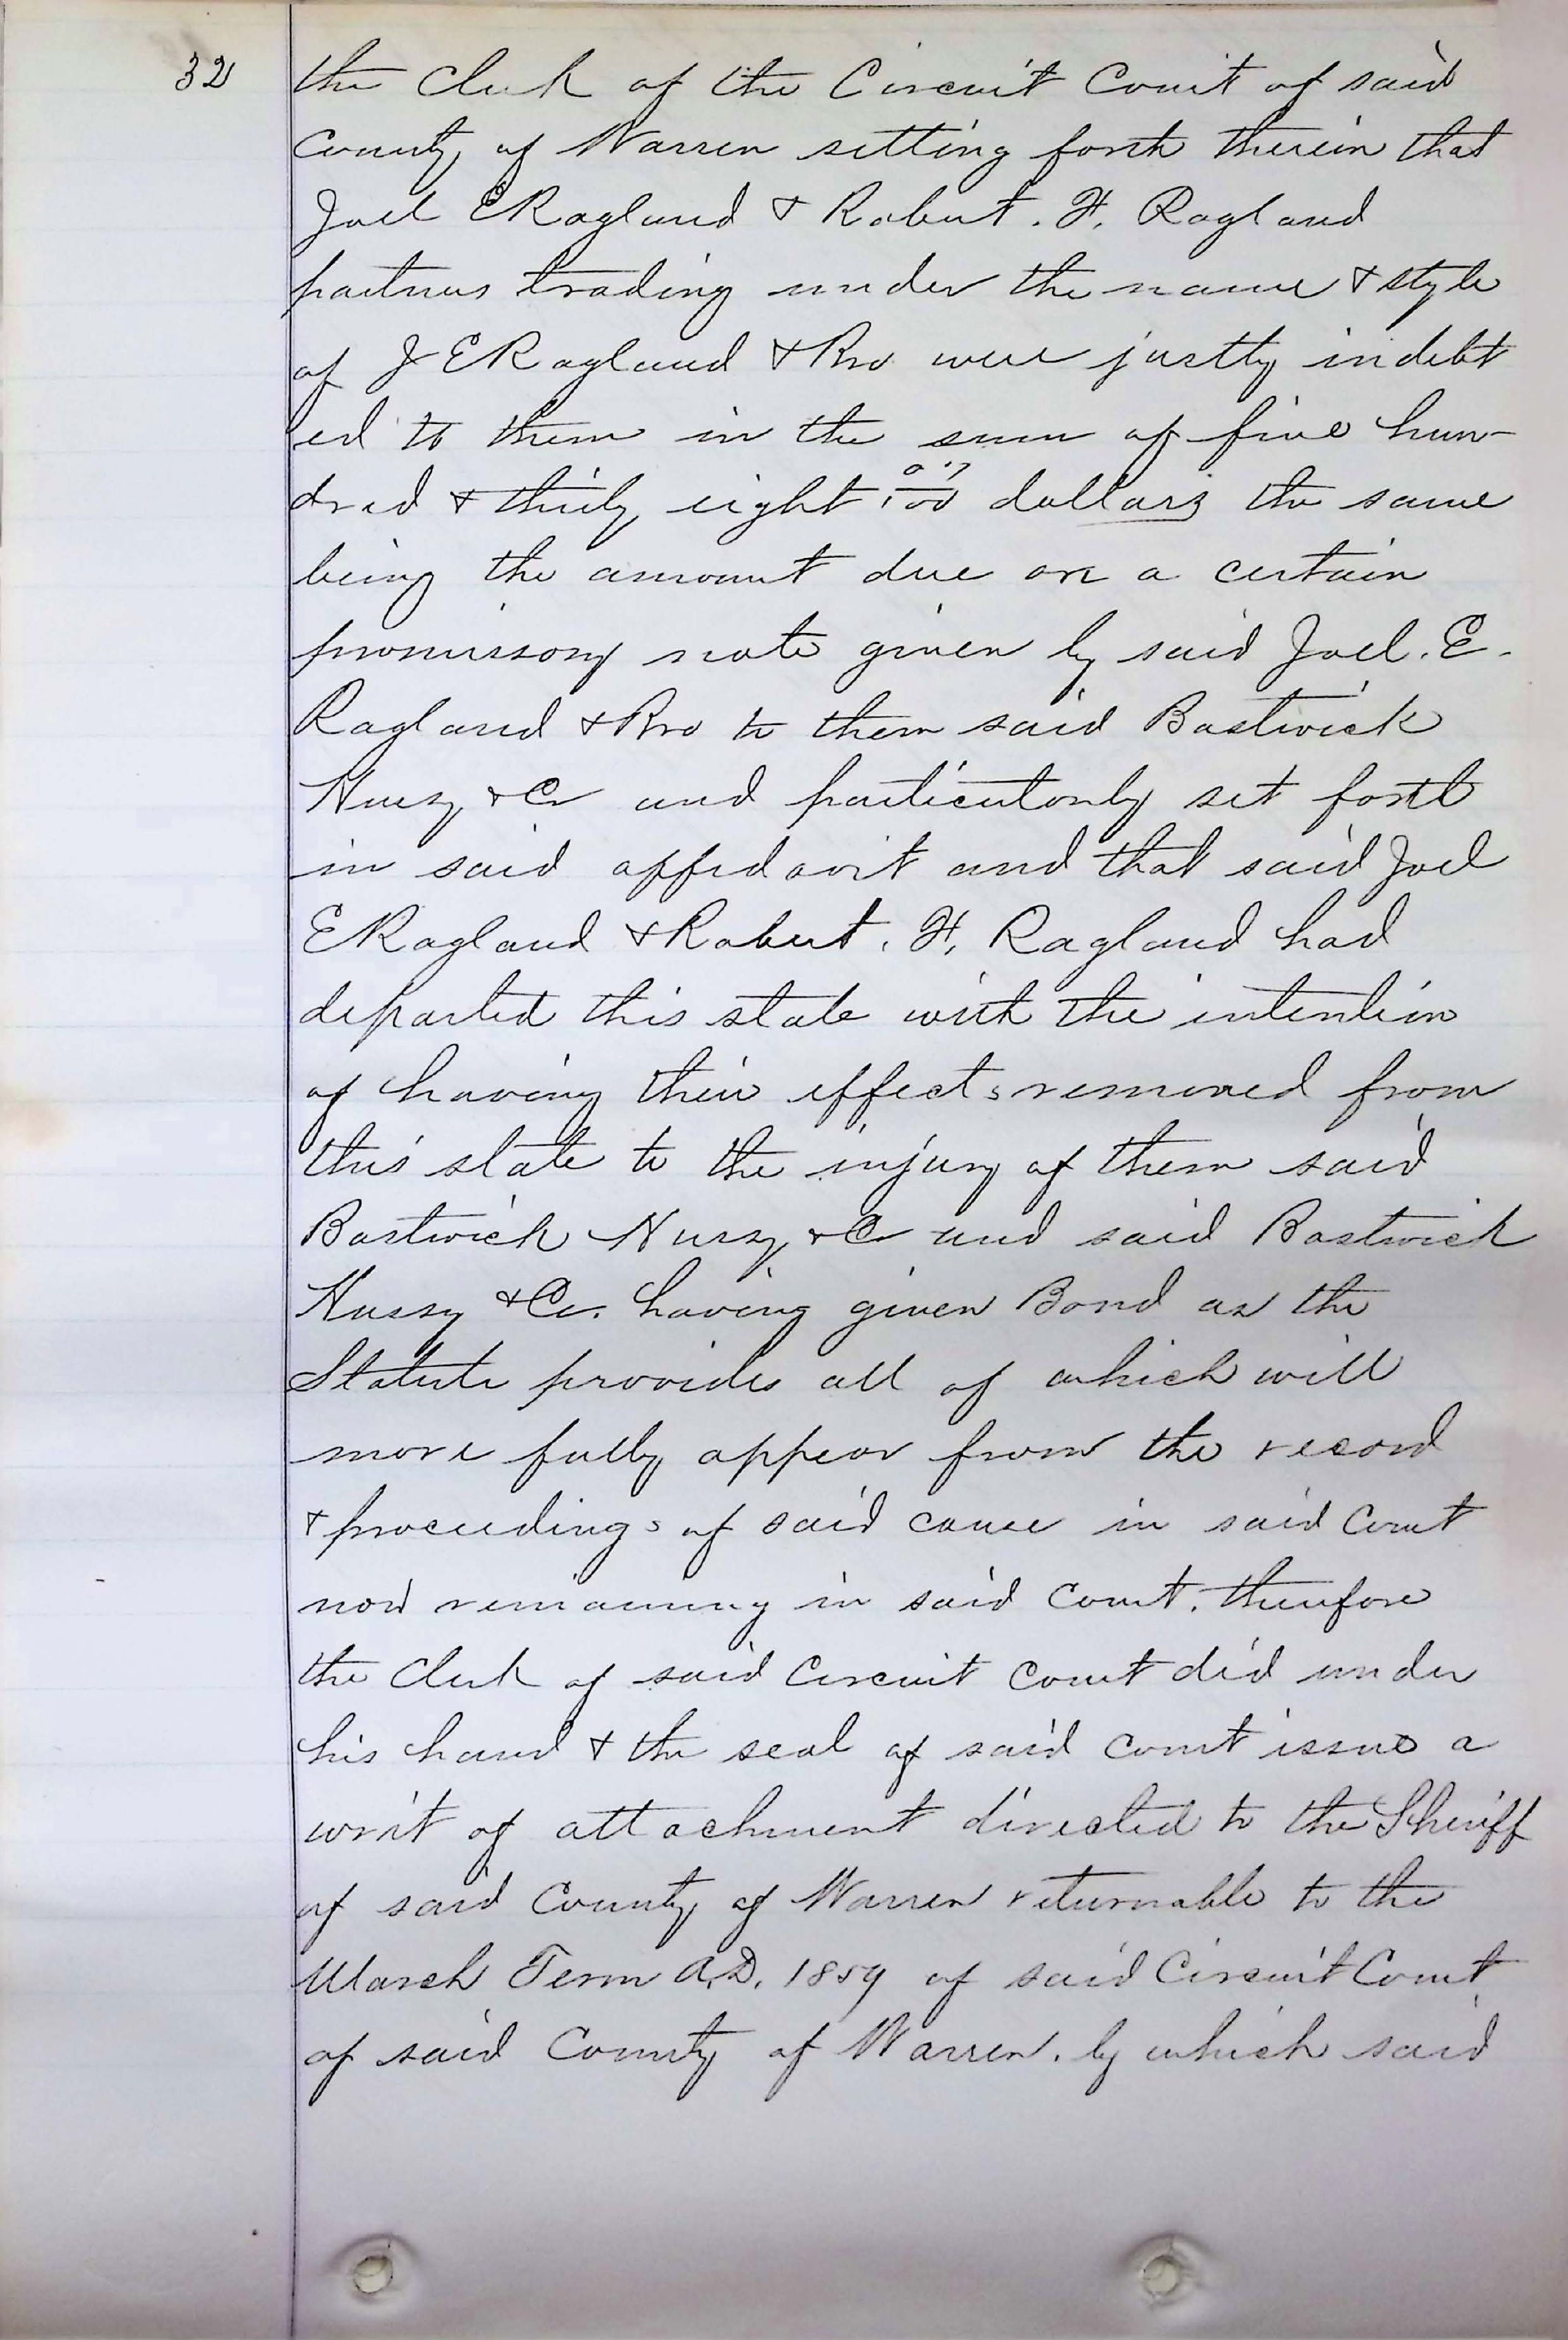 32
the Clerk of the Circuit Court of said
County of Warren setting forth therein that
Joel E Ragland & Robert. H. Ragland
partners trading under the name & style
of J E Ragland & Bro were justly indebt
ed to them in the sum of five hun-
dred & thirty eight 07/100 dollars the same
being the amount due on a certain
promissory note given by said Joel. E.
Ragland & Bro to them said Bostwick
Hussy & Co and particularly set forth
in said affidavit and that said Joel
E Ragland & Robert. H. Ragland had
departed this state with the intention
of having their effects removed from
this state to the injury of them said
Bostwick Hussy & Co and said Bostwick
Hussy & Co. having given Bond as the
Statute provides all of which will
more fully appear from the record
& proceedings of said cause in said Court
now remaining in said Court. therefore
the Clerk of said Circuit Court did under
his hand & the seal of said Court issue a
writ of attachment directed to the Sheriff
of said County of Warren returnable to the
March Term A.D. 1859 of said Circuit Court
of said County of Warren. by which said